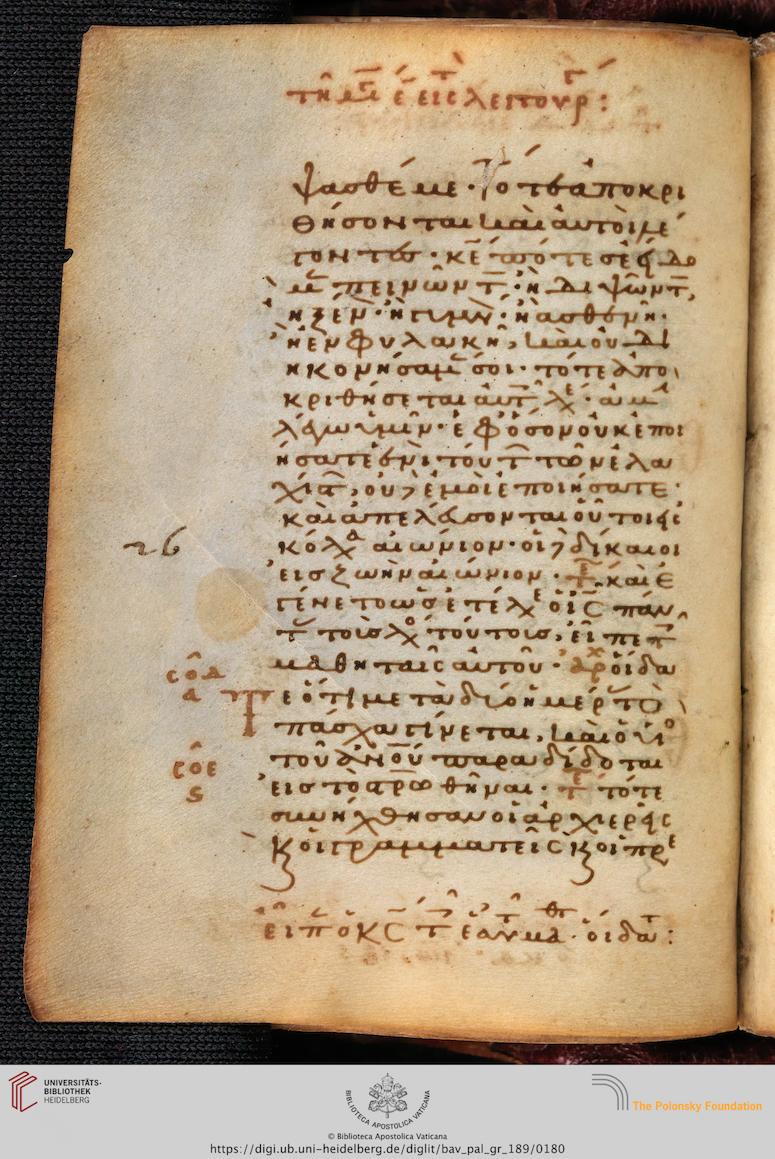 ψασθέ με· τότε ἀποκρι
θήσονται καὶ αὐτοὶ λέ
γοντες· κε πότε σὲ εἴδο
μεν πεινῶντα· ἢ διψῶντα,
ἢ ξένον· ἢ γυμνόν· ἢ ἀσθενῆ·
ἢ ἐν φυλακῇ, καὶ οὐ δι
ηκονήσαμεν σοι· τότε ἀπο
κριθήσεται αὐτοῖς λέγων· ἀμὴν
λέγω ὑμῖν· ἐφόσον οὐκ ἐποι
ήσατε ἑνὶ τούτων τῶν ἐλα
χίστων, οὐδὲ ἐμοὶ ἐποιήσατε·
καὶ ἀπελεύσονται οὗτοι εἰς
κόλασιν αἰώνιον· οἱ δὲ δίκαιοι
εἰς ζωὴν αἰώνιον· καὶ ἐ
γένετο ὡς ἐτέλεσεν ὁ ις πάν
τας τοὺς λόγους τούτους, εἶπε τοῖς
μαθηταῖς αὐτοῦ· οἴδα
26
τε ὅτι μετὰ δύο ἡμέρας τὸ
πάσχα γίνεται, καὶ ὁ υἱὸς
τοῦ ανου παραδίδοται
εἰς τὸ σταυρωθῆναι· τότε
συνήχθησαν οἱ ἀρχιερεῖς
καὶ οἱ γραμματεῖς καὶ οἱ πρε
UNIVERSITÄTS-
BIBLIOTHEK
HEIDELBERG
BIBLIOTECA APOSTOLICA VATICANA
The Polonsky Foundation
© Biblioteca Apostolica Vaticana
https://digi.ub.uni-heidelberg.de/diglit/bav_pal_gr_189/0180